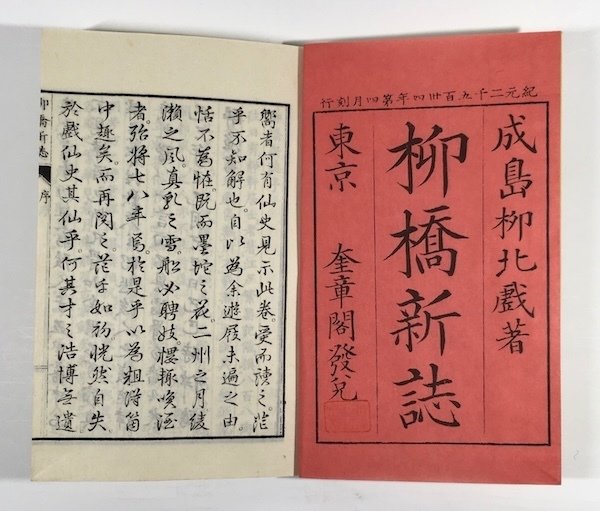 紀元二千五百卅四年第四月刻行
成島柳北戲著
柳橋新誌
東京 奎章閣發兌
嚮者何有仙史見示此卷。受而讀之。茫
乎不知解也。自以為余遊屐未遍之由。
恬不為恠。既而墨坨之花。二州之月。綾
瀬之風。真乳之雪。船必聘妓。樓輙喚酒
者。殆將七八年焉。於是乎以為粗得箇
中趣矣。而再閱之。茫乎如初。恍然自失。
於戲仙史其仙乎。何其才之浩博無遺
柳橋新誌 序